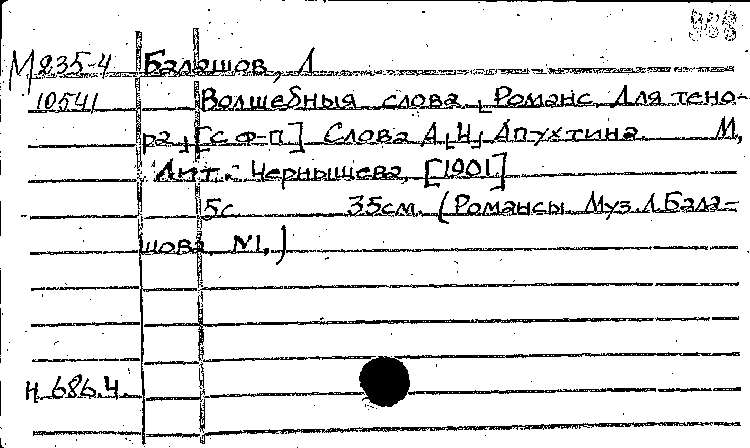 988
М 235-4 Балашов, Л
10541 Волшебныя слова. Романс. Для тено-
ра, [с ф-п] Слова А. Н. Апухтина. М,
Лит. Чернышева, [1901]
5с. 35см. (Романсы. Муз. Л. Бала-
шова, №1,)
Н. 686.4.